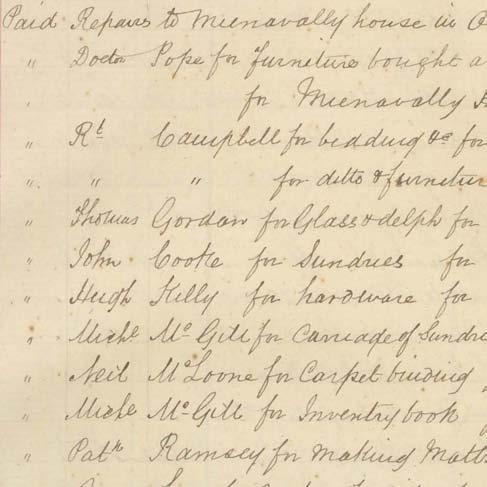 Paid Repairs to Meenavally house in
" Doctor Pope for furniture bought a
" for Meenavally
" Rt Campbell for bedding &c for
" " " for ditto & furnitur
" Thomas Gordan for Glass & delph for
" John Cooke for Sundries for
" Hugh Kelly for hardware for
" Miche Mc Gill for Carriage of Sundri
" Neil McLoone for Carpet binding
" Miche Mc Gill for Inventry book
" Patk Ramsey for making Matt